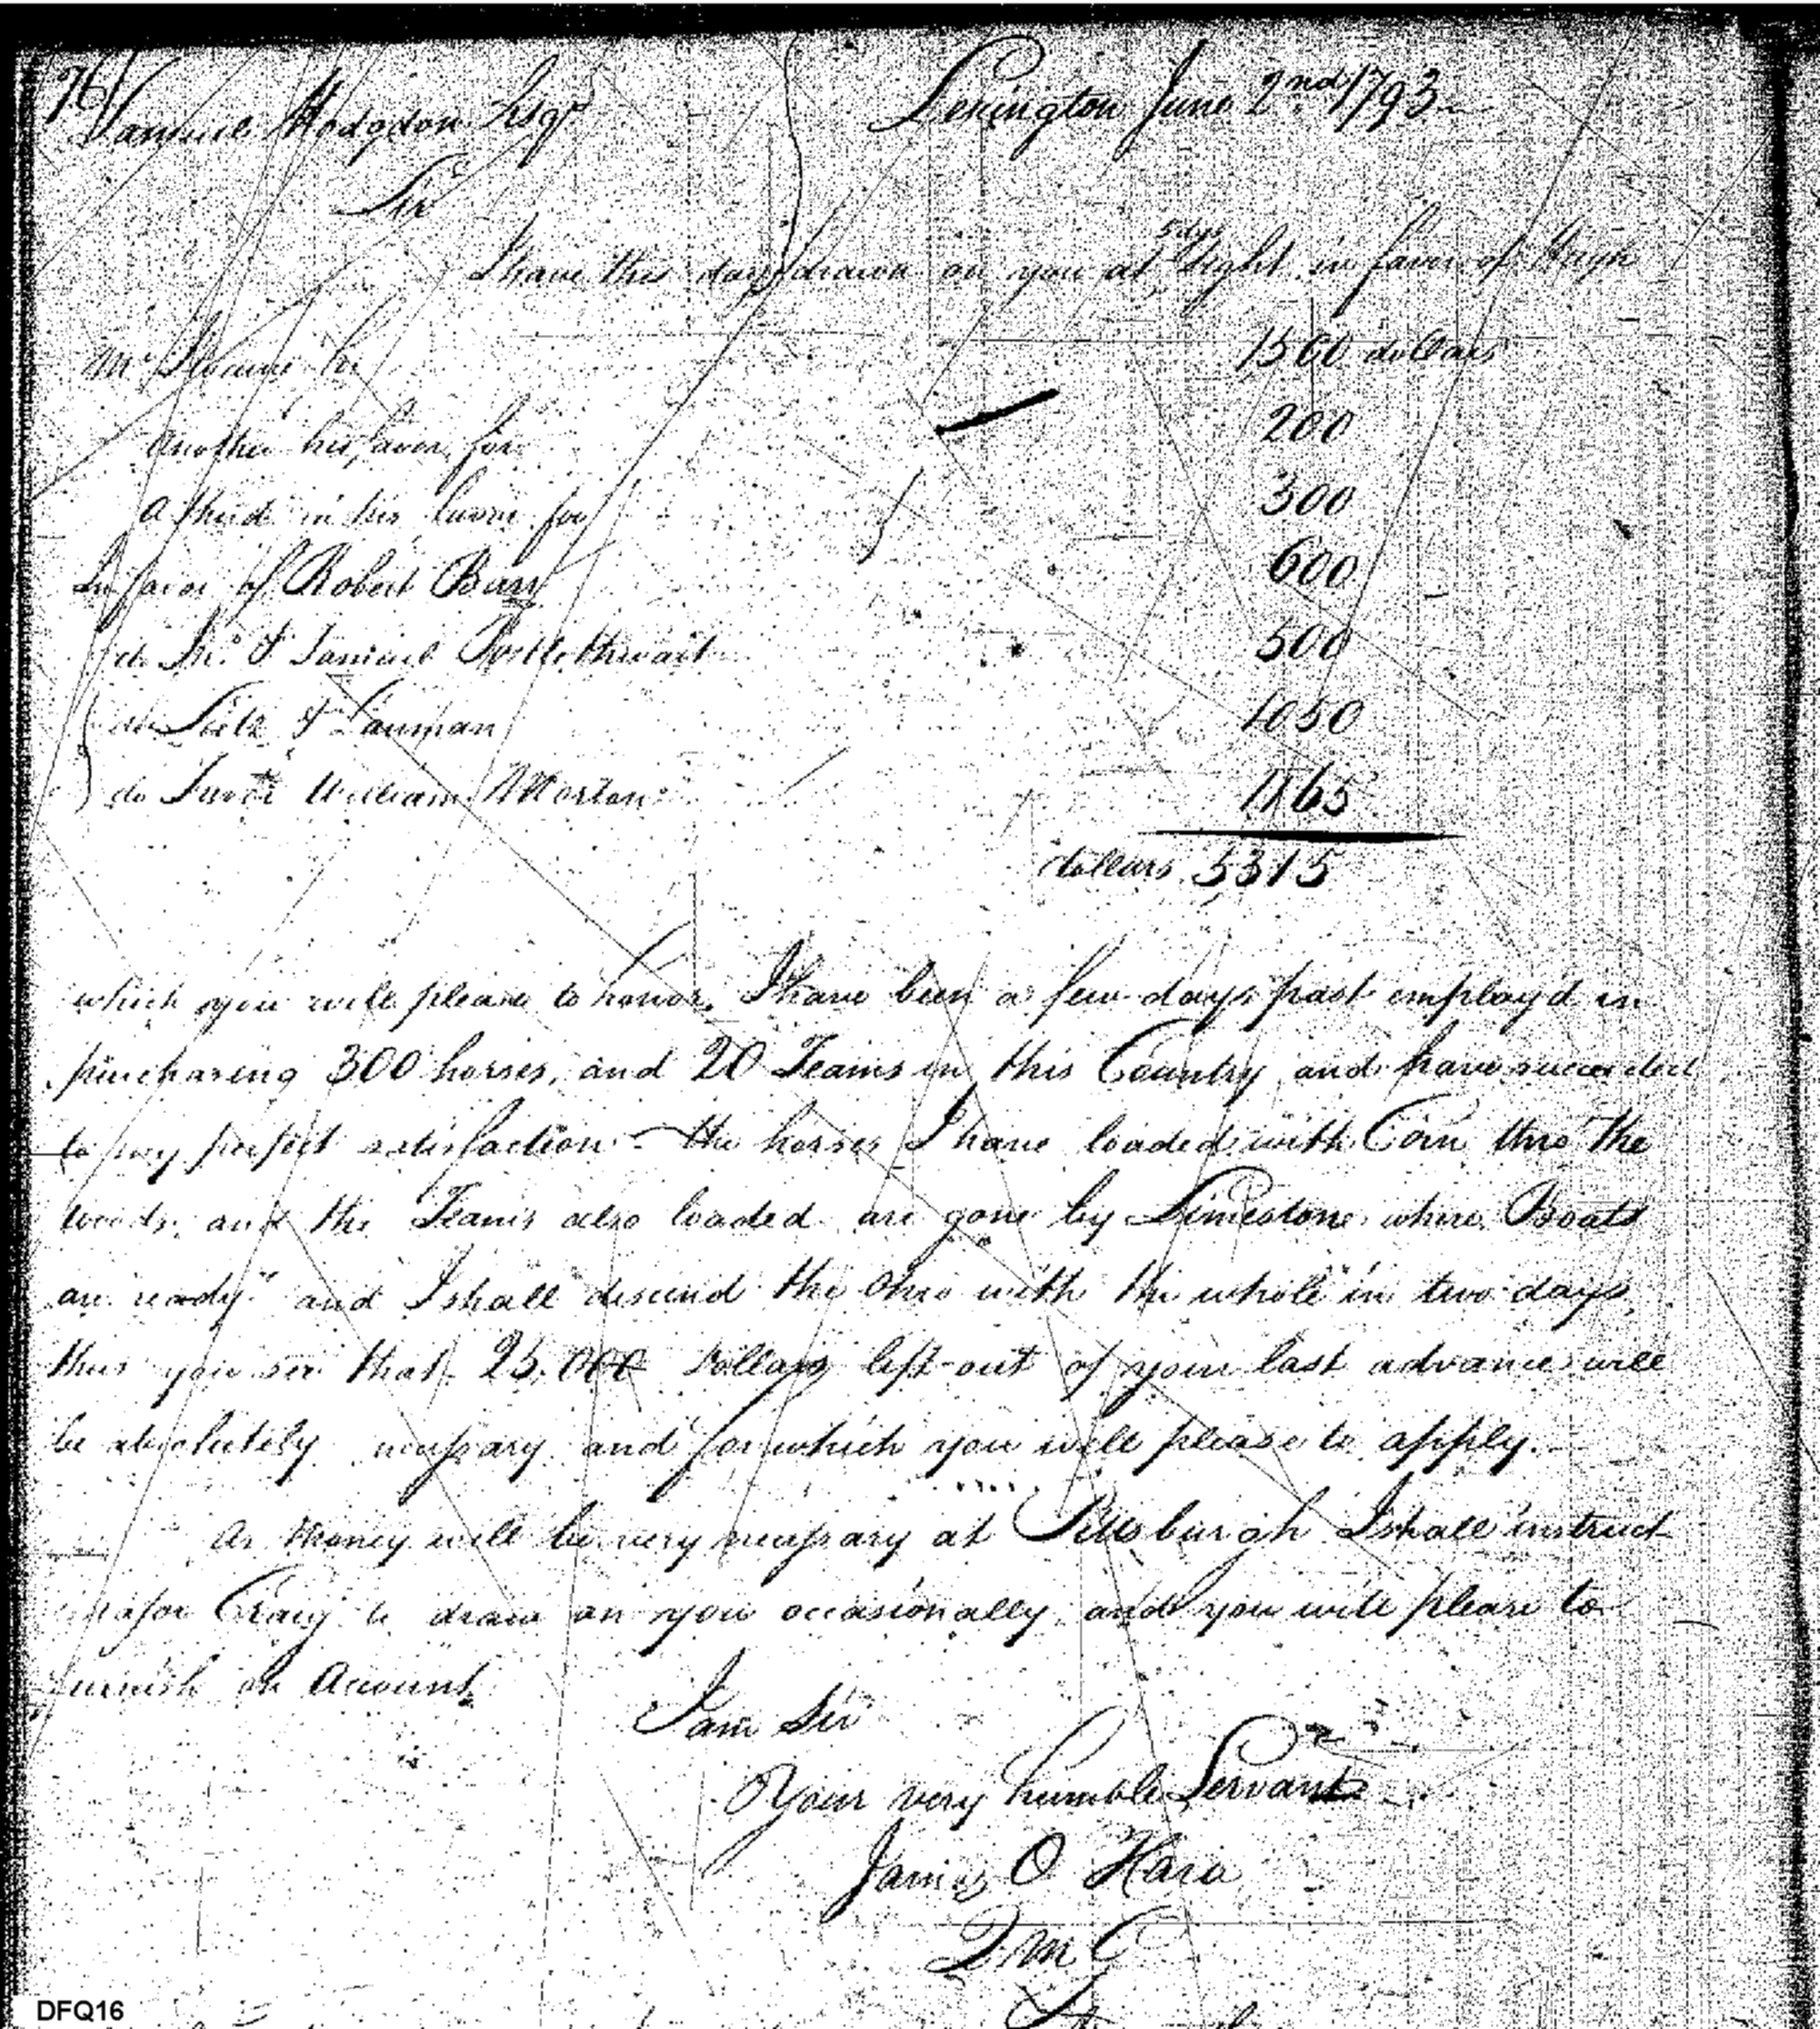 76
Samuel Hodgdon Esqr Lexington June 2nd 1793
Sir
5 dys
I have this day drawn on you at Sight in favor of Hugh
Mc Ilvaine for 1500 dollars
Another his favor for 200
A third in his favor for 300
In favor of Robert Barr 600
do Jno. & Samuel Postlethwait 500
do Seitz & Lauman 1050
do William Morton 1165
dollars 5315
which you will please to honor. I have been a few days past employ'd in
purchasing 300 horses, and 20 Teams in this Country and have succeeded
to my perfect satisfaction - the horses I have loaded with Corn thro' the
woods, and the Teams also loaded are gone by Limestone where Boats
are ready and I shall descend the Ohio with the whole in two days,
thus you see that 25.000 Dollars left out of your last advance will
be absolutely necessary and for which you will please to apply.
As Money will be very necessary at Pittsburgh I shall instruct
Major Craig to draw on you occasionally and you will please to
furnish on Account
I am Sir
Your very humble Servant
James O Hara
Q M G
DFQ16